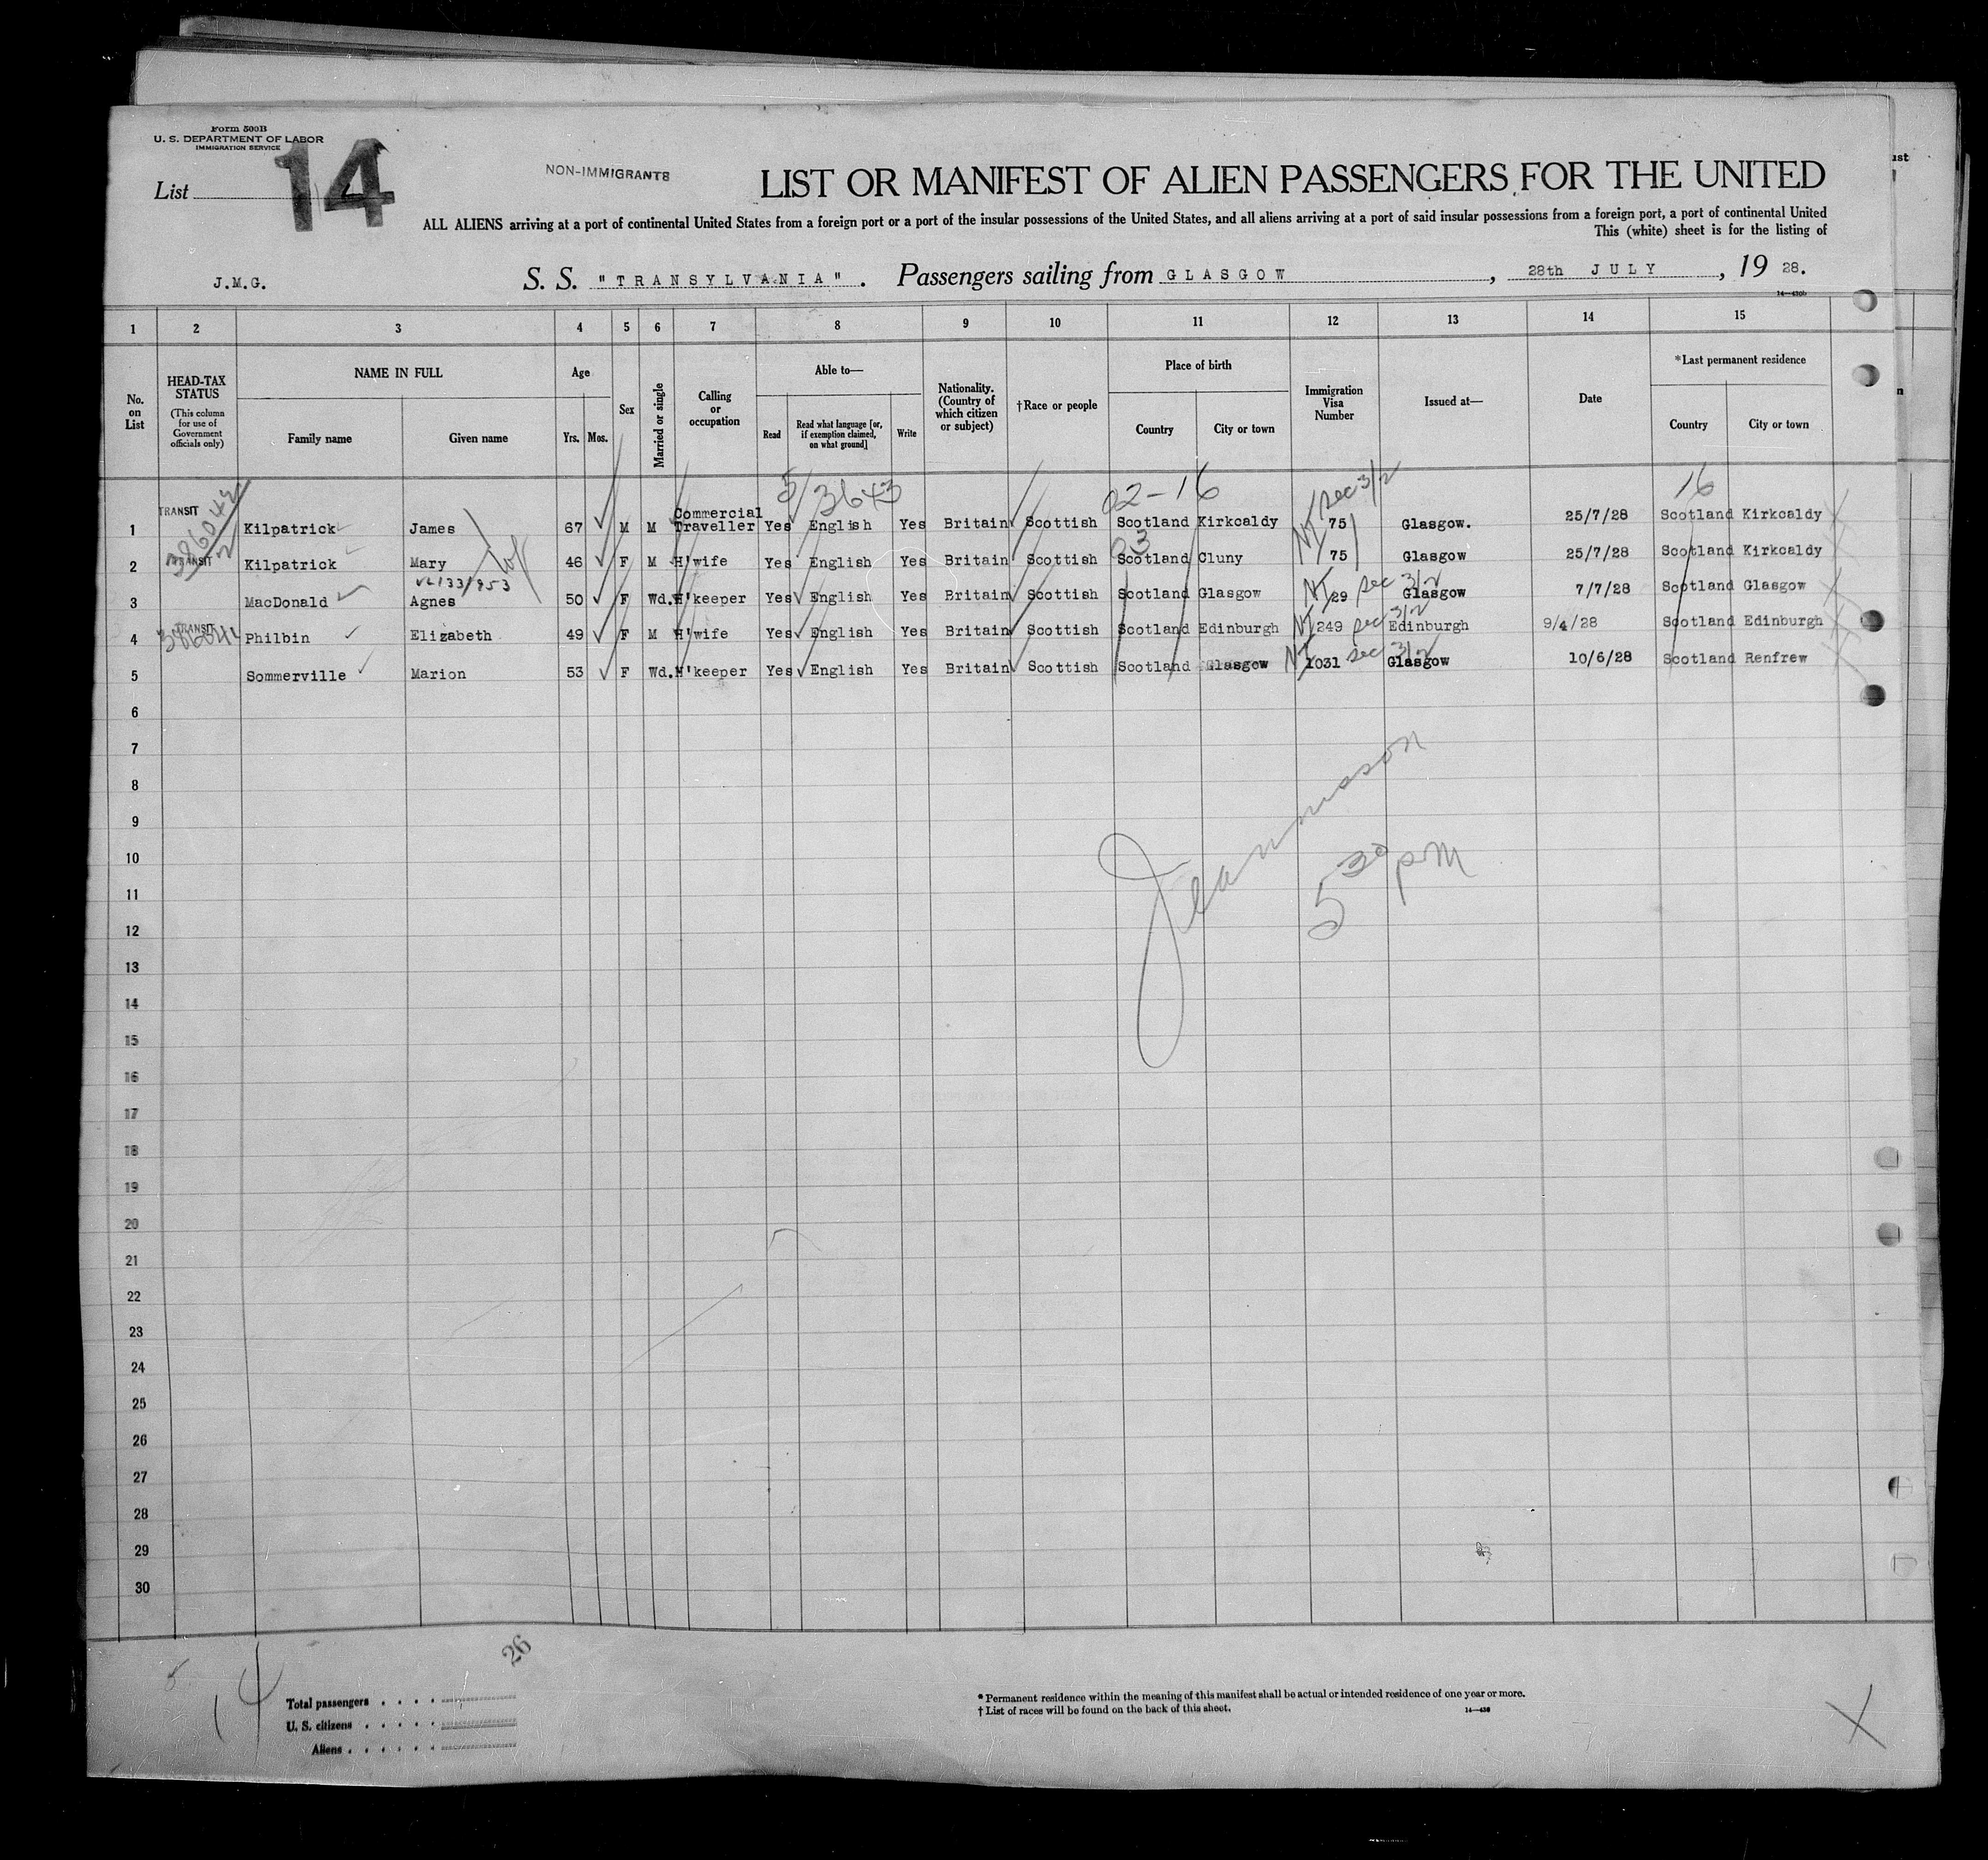 Form 500B
U. S. DEPARTMENT OF LABOR
IMMIGRATION SERVICE
List 14
NON-IMMIGRANTS
LIST OR MANIFEST OF ALIEN PASSENGERS FOR THE UNITED
ALL ALIENS arriving at a port of continental United States from a foreign port or a port of the insular possessions of the United States, and all aliens arriving at a port of said insular possessions from a foreign port, a port of continental United
This (white) sheet is for the listing of
J.M.G. S. S. "TRANSYLVANIA". Passengers sailing from GLASGOW, 28th JULY, 19 28.
14—430b
1 2 3 4 5 6 7 8 9 10 11 12 13 14 15
No. on List
HEAD-TAX STATUS
(This column for use of Government officials only)
NAME IN FULL
Family name Given name
Age
Yrs. Mos.
Sex
Married or single
Calling or occupation
Able to—
Read
Read what language [or, if exemption claimed, on what ground]
Write
Nationality. (Country of which citizen or subject)
†Race or people
Place of birth
Country City or town
Immigration Visa Number
Issued at—
Date
*Last permanent residence
Country City or town
5/3643 02-16 sec 3/2 16
386042
2
1 TRANSIT Kilpatrick James 67 M M Commercial Traveller Yes English Yes Britain Scottish Scotland Kirkcaldy NT 75 Glasgow. 25/7/28 Scotland Kirkcaldy
03
2 TRANSIT Kilpatrick Mary 46 F M H'wife Yes English Yes Britain Scottish Scotland Cluny 75 Glasgow 25/7/28 Scotland Kirkcaldy
VL133/953
3 MacDonald Agnes 50 F Wd. H'keeper Yes English Yes Britain Scottish Scotland Glasgow NT 29 sec 3/2 Glasgow 7/7/28 Scotland Glasgow
4 TRANSIT Philbin Elizabeth 49 F M H'wife Yes English Yes Britain Scottish Scotland Edinburgh NT 249 sec 3/2 Edinburgh 9/4/28 Scotland Edinburgh
5 Sommerville Marion 53 F Wd. H'keeper Yes English Yes Britain Scottish Scotland Glasgow NT 1031 sec 3/2 Glasgow 10/6/28 Scotland Renfrew
6
7
8
9
10
11
12
13
14
15
16
17
18
19
20
21
22
23
24
25
26
27
28
29
30
5 30 pm
26
5
14
Total passengers
U. S. citizens
Aliens
* Permanent residence within the meaning of this manifest shall be actual or intended residence of one year or more.
† List of races will be found on the back of this sheet.
14—430
X